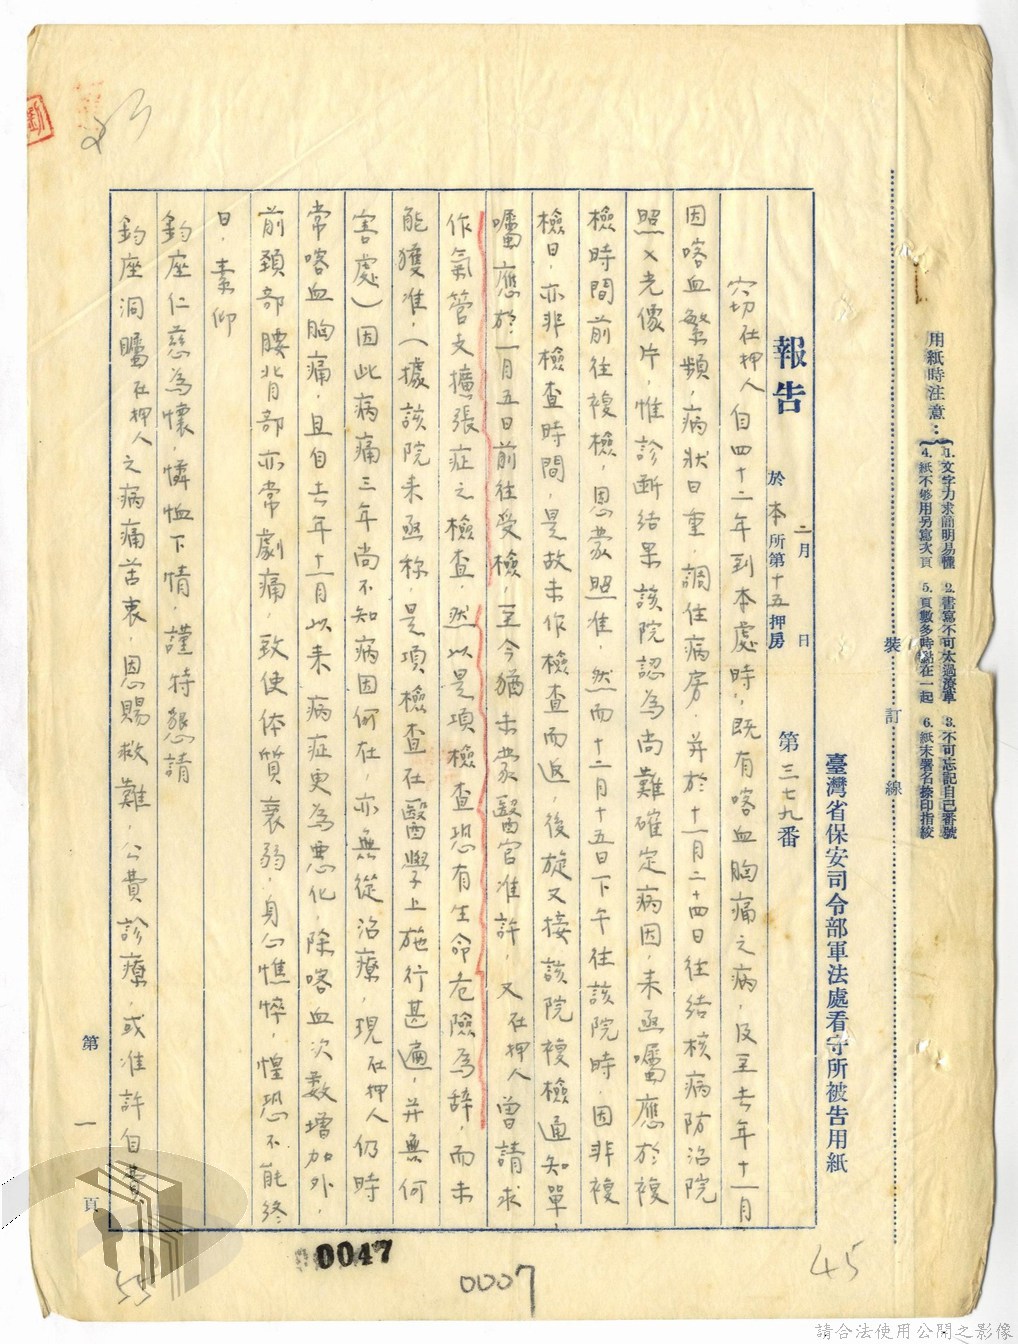 用紙時注意：
1. 文字力求簡明易懂 2. 書寫不可太過潦草 3. 不可忘記自己番號
4. 紙不够用另寫次頁 5. 頁數多時黏在一起 6. 紙末署名捺印指紋
裝訂線
臺灣省保安司令部軍法處看守所被告用紙
報告
二月 日
於本所第十五押房
第三七九番
窃在押人自四十二年到本處時，既有喀血胸痛之病，及至去年十一月
因喀血繁頻，病狀日重，調住病房，并於十一月二十四日往結核病防治院
照X光像片，惟診断結果該院認為尚難確定病因，来函囑應於複
檢時間前往複檢，恩蒙照准，然而十二月十五日下午往該院時，因非複
檢日，亦非檢查時間，是故未作檢查而返，後旋又接該院複檢通知單，
囑應於一月五日前往受檢，至今猶未蒙醫官准許，又在押人曾請求
作氣管支擴張症之檢查，然以是項檢查恐有生命危險為辞，而未
能獲准，（據該院来函称，是項檢查在醫學上施行甚遍，并無何
害處）因此病痛三年尚不知病因何在，亦無從治療，現在押人仍時
常喀血胸痛，且自去年十一月以来病症更為悪化，除喀血次数增加外，
前頚部腰背部亦常劇痛，致使体質衰弱，身心憔悴，惶恐不能終
日，素仰
鈞座仁慈為懷，憐恤下情，謹特懇請
鈞座洞矚在押人之病痛苦衷，恩賜救難，公費診療，或准許自費
第一頁
0047
0007
45
55
請合法使用公開之影像